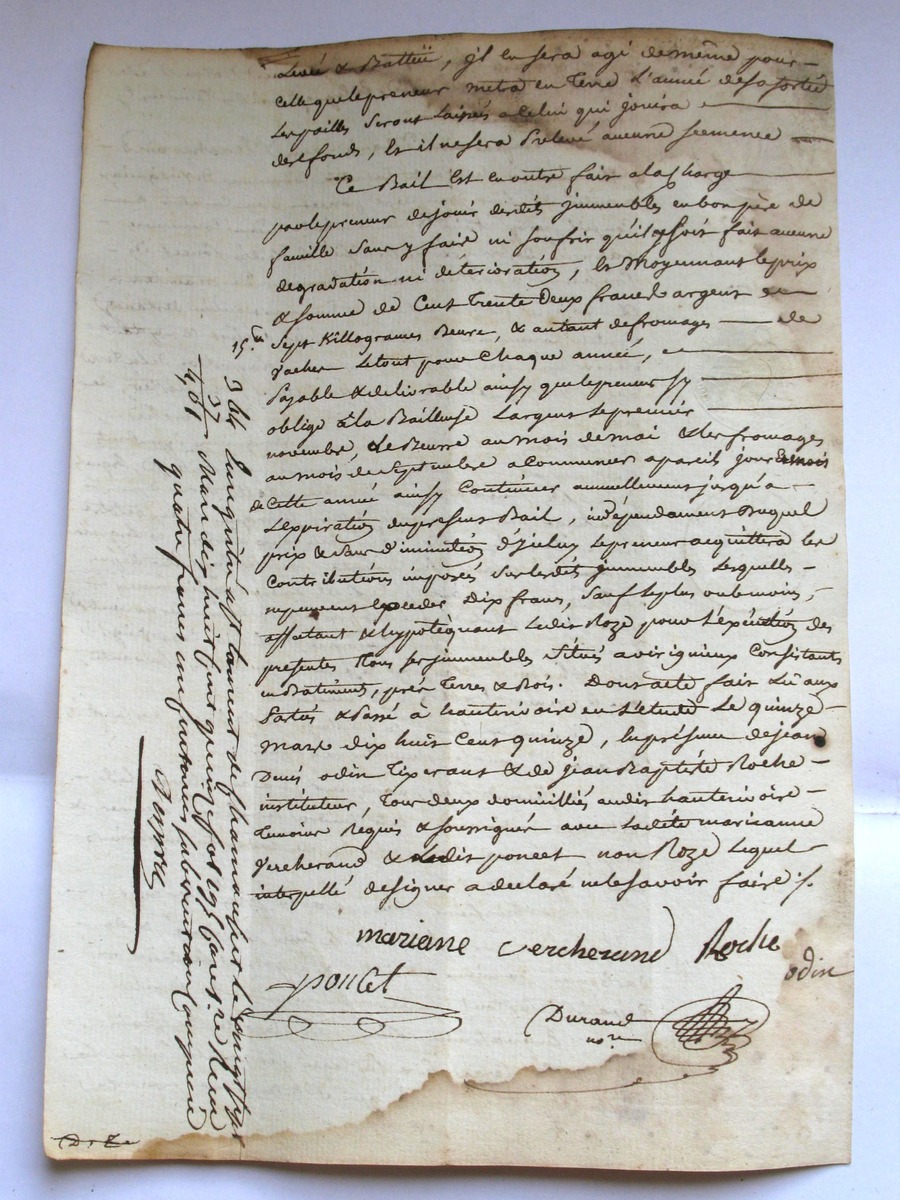 Levée & Battüe, jl en sera agi de même pour
celle que le preneur metra en Terre l'année de sa sortie
Les pailles seront laissés a celui qui jouira
des fonds, Et il ne sera prelevé aucune seemence
Ce Bail Est en outre fait a la charge
par le preneur de jouir desdits jmmeubles en bon père de
famille sans y faire ni souffrir qu'il y soit fait aucune
degradation ni déterioration, Et Moyennant le prix
& somme de Cent Trente Deux francs argent de
Sept Killogrames Beure, & autant de fromages de
vaches Le tout pour chaque année,
Payable & delivrable ainsy que le preneur sy
oblige à la Bailleuse L'argent Le premier
novembre, Le Beurre au mois de mai & Les fromages
au mois de Septembre a Commencer a pareils jours & mois
de Cette année ainsy Continuer annuellement jusqu'a
L'expiration du present Bail, indépendament Duquel
prix & sans diminution d'jcelui Le preneur acquittera les
Contributions imposés sur lesdits jmmeubles Lesquelles
ne peuvent Exceder Dix francs, sauf le plus ou le moins,
affectant & hypotéquant Ledit Roze pour L'éxécution des
presentes Tous ses jmmeubles situés a virignieux Consistants
en Batiment, prés Terres & Bois. Dont acte fait Lu aux
Parties & Passé à hauterivoire en L'étude Le quinze
Mars dix huit Cent quinze, En présence de jean
Denis odin Tixerant & de jean Baptiste Roche
instituteur, Tous deux domiciliés audit hauterivoire
Temoins Réquis & soussignés avec Ladite marianne
Vercherand & Ledit poncet non Roze Lequel
interpellé de signer a declaré ne le savoir faire ./.
mariane vercherand Roche
odin
poncet
Durand
nore
15.
Enregistré a St Laurent de chamousset le vingt sept
Mars dix huit cent quinze fol 97
quatre francs un centimes subvention comprise